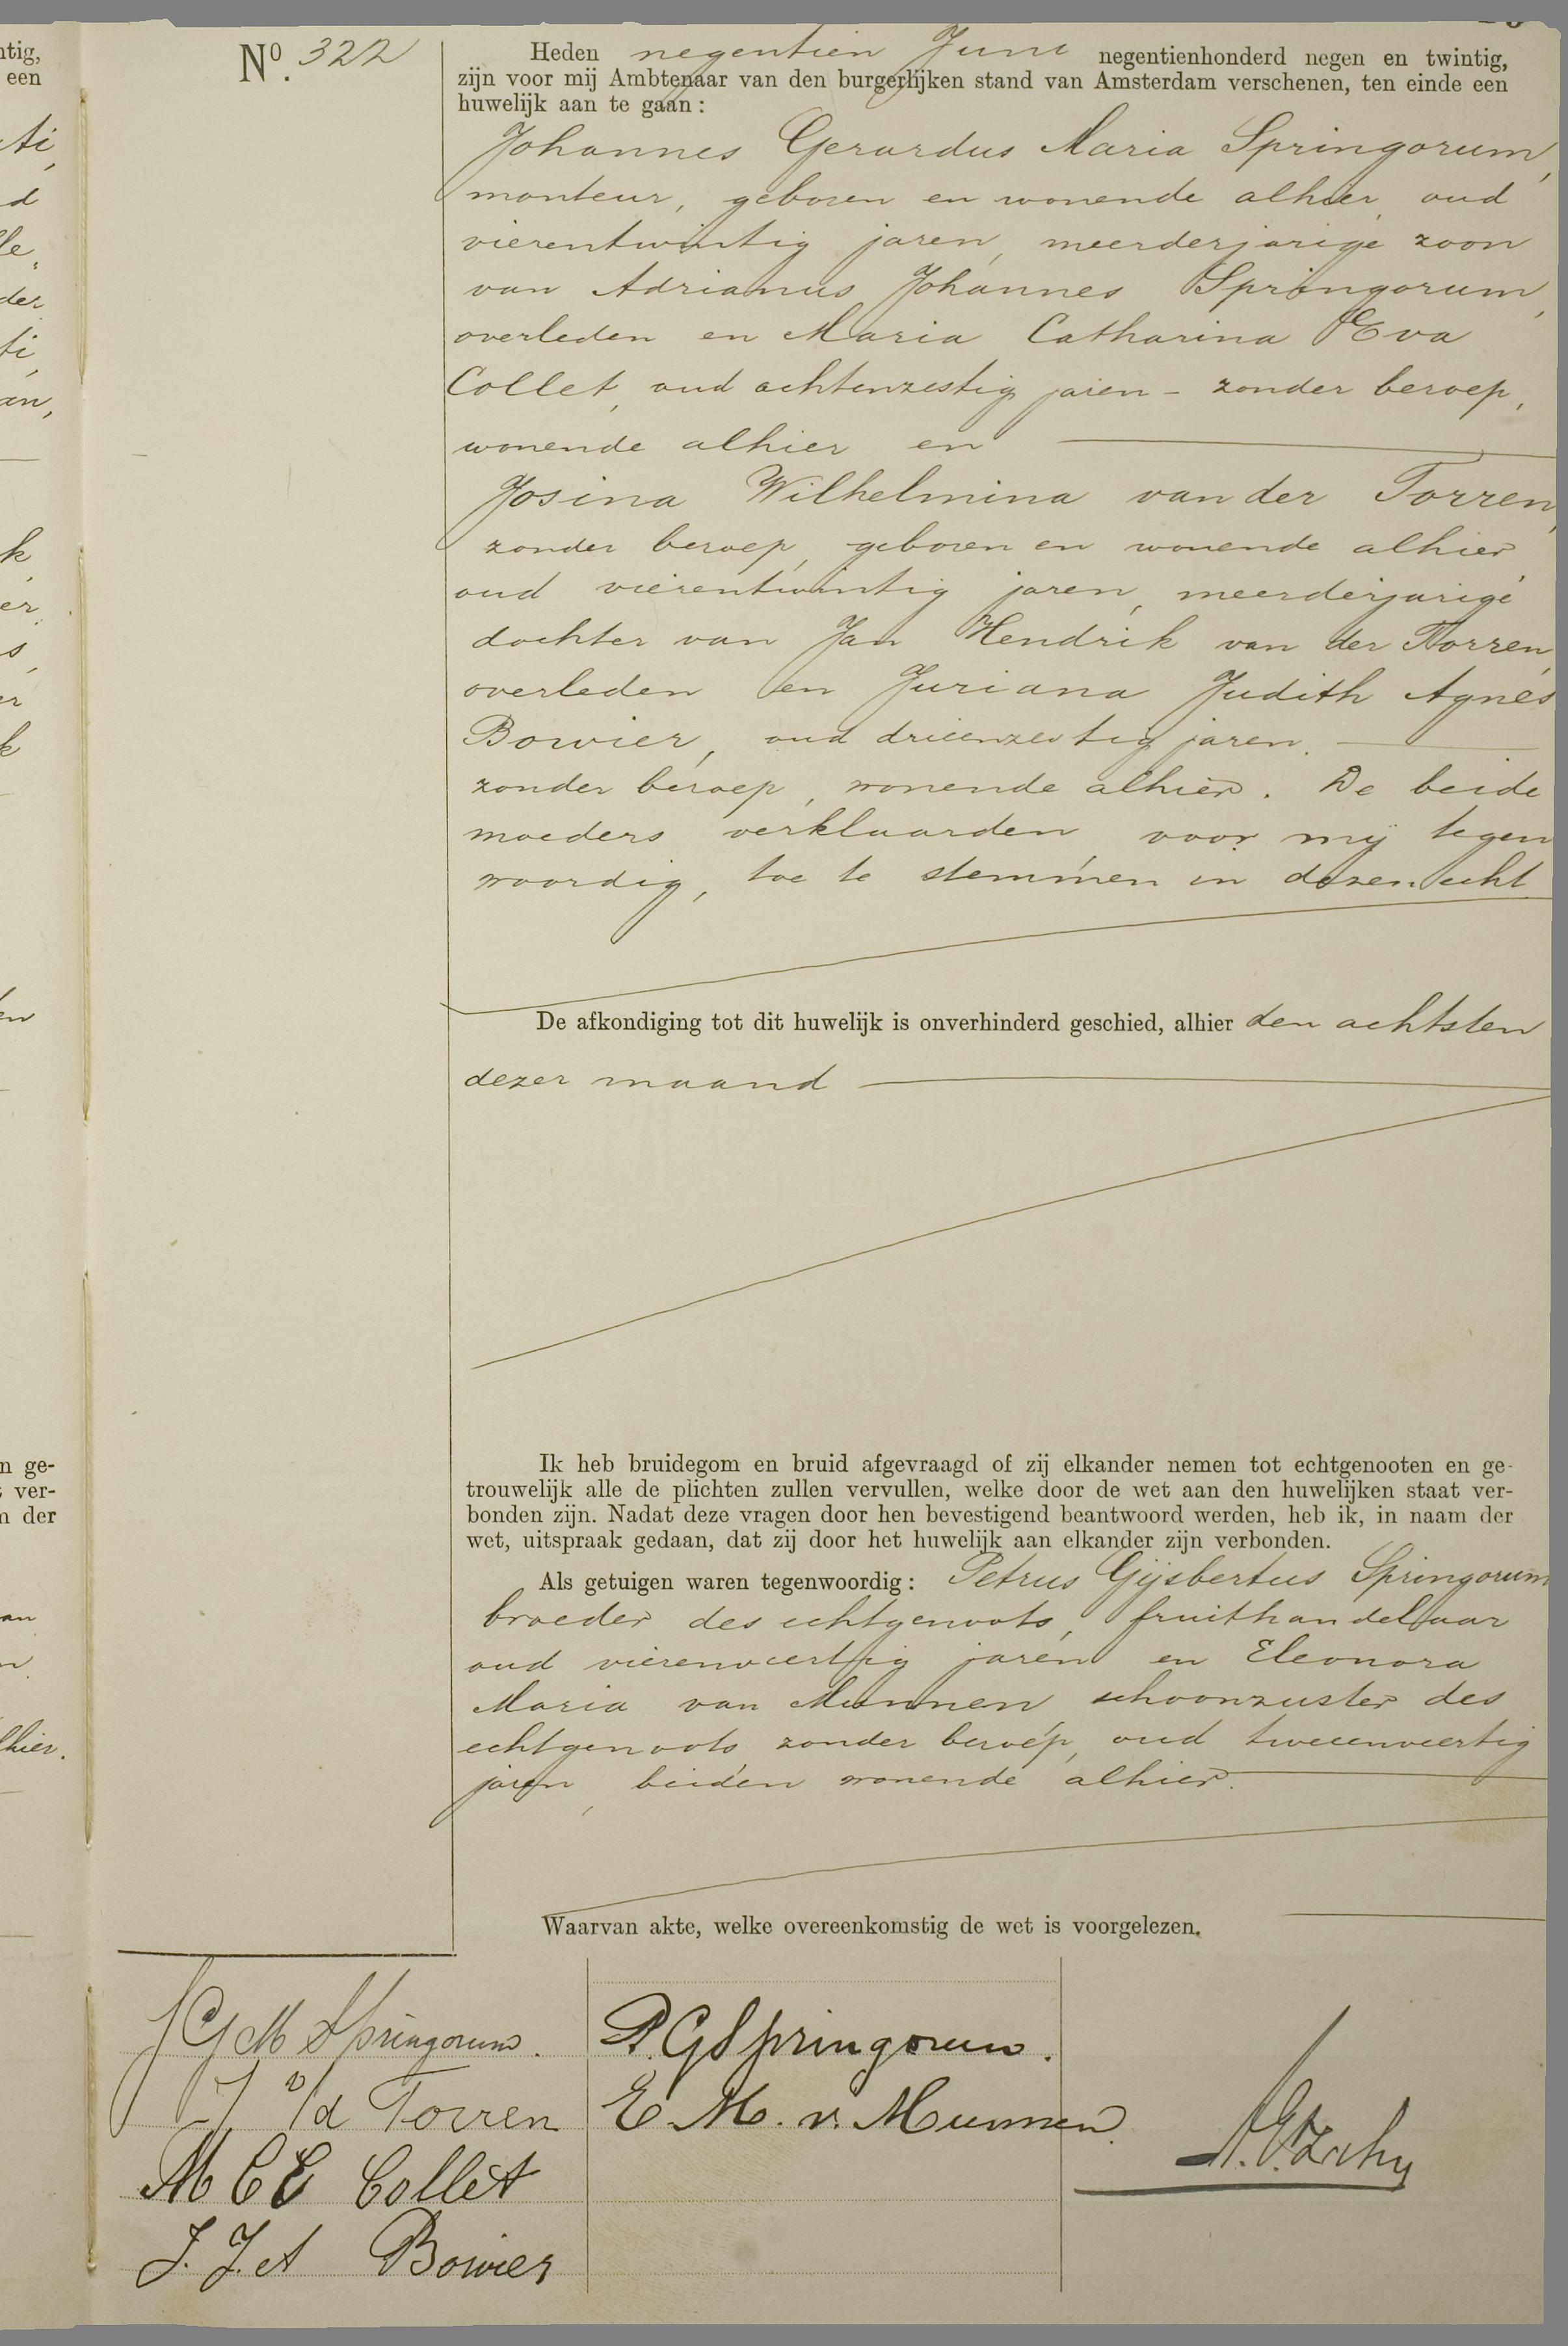 Nº. 322
Heden negentien Juni negentienhonderd negen en twintig,
zijn voor mij Ambtenaar van den burgerlijken stand van Amsterdam verschenen, ten einde een
huwelijk aan te gaan:
Johannes Gerardus Maria Springorum,
monteur, geboren en wonende alhier, oud
vierentwintig jaren, meerderjarige zoon
van Adrianus Johannes Springorum,
overleden en Maria Catharina Eva
Collet, oud achtenzestig jaren - zonder beroep,
wonende alhier en
Josina Wilhelmina van der Torren,
zonder beroep, geboren en wonende alhier
oud vierentwintig jaren, meerderjarige
dochter van Jan Hendrik van der Torren,
overleden en Juriana Judith Agnes
Bowier, oud drieenzestig jaren.
zonder beroep, wonende alhier. De beide
moeders verklaarden, voor mij tegen
woordig, toe te stemmen in dezen echt
De afkondiging tot dit huwelijk is onverhinderd geschied, alhier den achtsten
dezer maand
Ik heb bruidegom en bruid afgevraagd of zij elkander nemen tot echtgenooten en ge-
trouwelijk alle de plichten zullen vervullen, welke door de wet aan den huwelijken staat ver-
bonden zijn. Nadat deze vragen door hen bevestigend beantwoord werden, heb ik, in naam der
wet, uitspraak gedaan, dat zij door het huwelijk aan elkander zijn verbonden.
Als getuigen waren tegenwoordig: Petrus Gijsbertus Springorum
broeder des echtgenoots, fruithandelaar
oud vierenveertig jaren en Eleonora
Maria van Munnen, schoonzuster des
echtgenoots zonder beroep, oud tweeenveertig
jaren, beiden wonende alhier.
Waarvan akte, welke overeenkomstig de wet is voorgelezen.
J G M Springorum.
J v/d Torren
M C E Collet
J. J. A Bowier
P. G Springorum.
E. M. v. Munnen